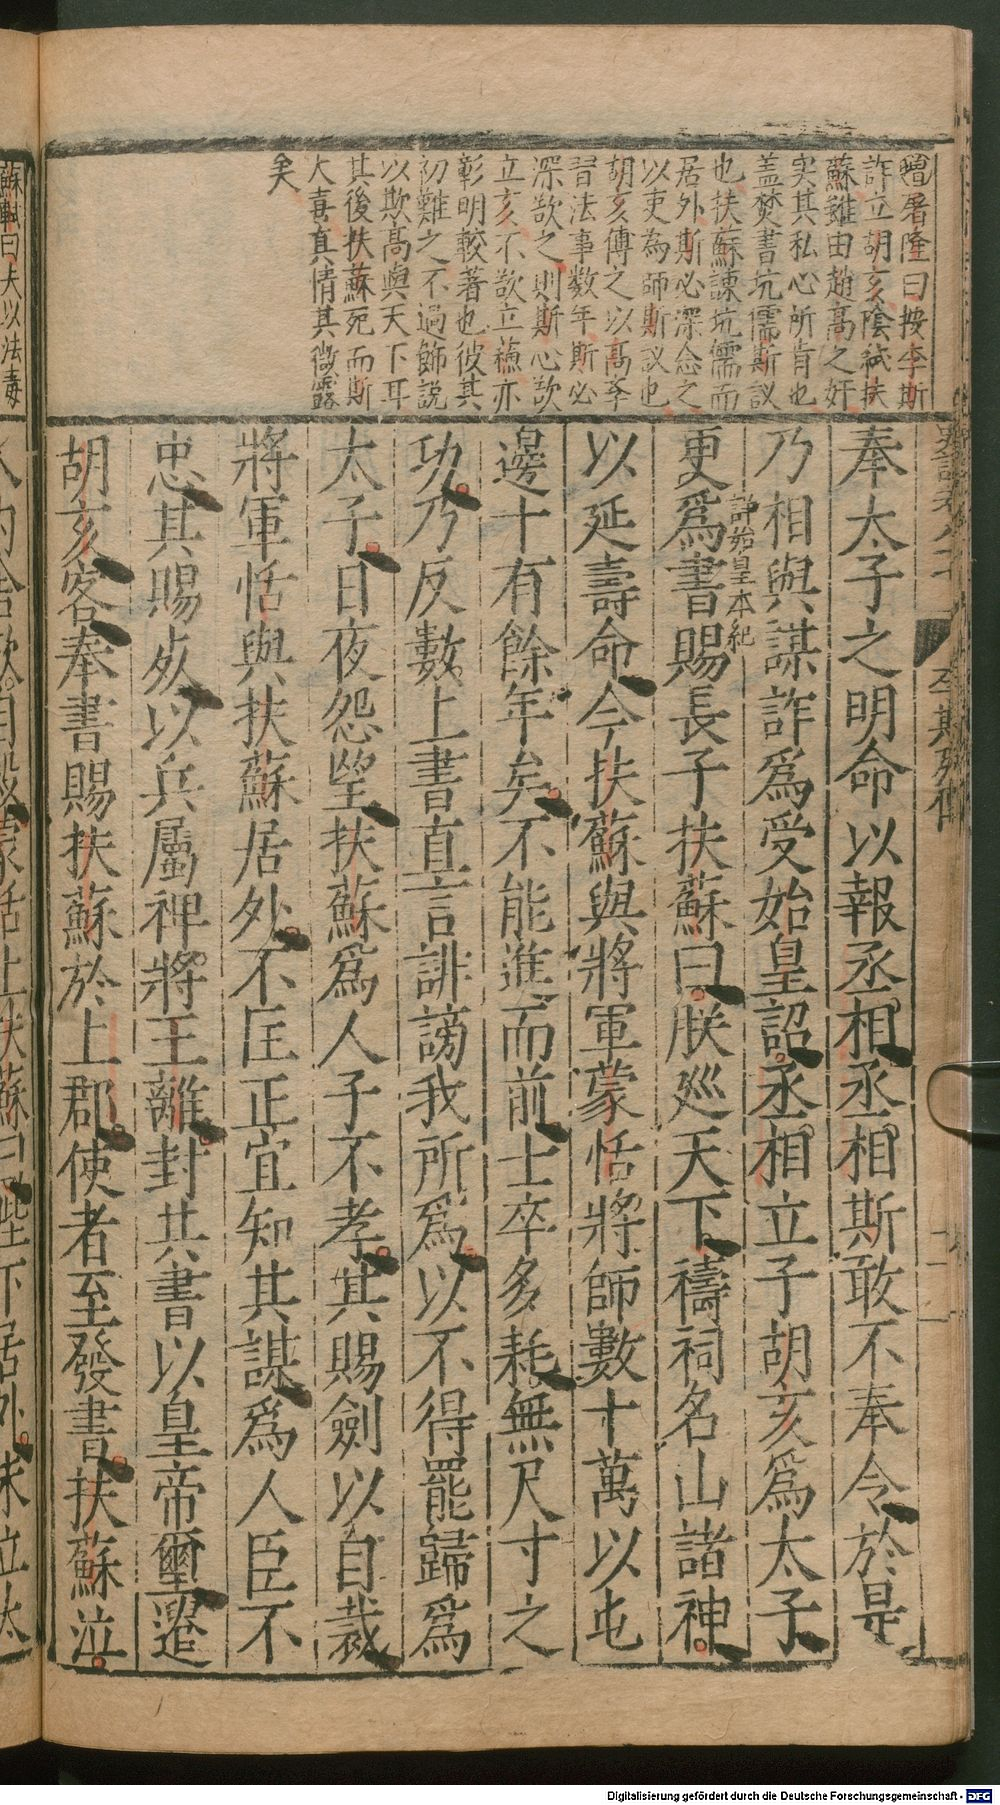 增屠隆曰按李斯
詐立胡亥陰弒扶
蘇雖由趙高之奸
実其私心所肯也
盖焚書坑儒斯議
也扶蘇諫坑儒而
居外斯必深念之
以吏為師斯议也
胡亥傅之以高季
習法事数年斯必
深欲之則斯心欲
立亥不欲立蘓亦
彰明較著也彼其
初難之不過餙説
以欺高與天下耳
其後扶蘇死而斯
大喜真情其微露
矣
李斯列傳
奉太子之明命以報丞相丞相斯敢不奉令於是
乃相與謀詐爲受始皇詔丞相立子胡亥爲太子
詳始皇本紀
更爲書賜長子扶蘇曰朕廵天下禱祠名山諸神
以延壽命今扶蘇與將軍蒙恬將師數十萬以屯
邊十有餘年矣不能進而前士卒多耗無尺寸之
功乃反數上書直言誹謗我所爲以不得罷歸爲
太子日夜怨望扶蘇爲人子不孝其賜劍以自裁
將軍恬與扶蘇居外不匡正宜知其謀爲人臣不
忠其賜死以兵屬裨將王離封其書以皇帝璽遣
胡亥客奉書賜扶蘇於上郡使者至發書扶蘇泣
蘇軾曰夫以法毒
Digitalisierung gefördert durch die Deutsche Forschungsgemeinschaft - DFG